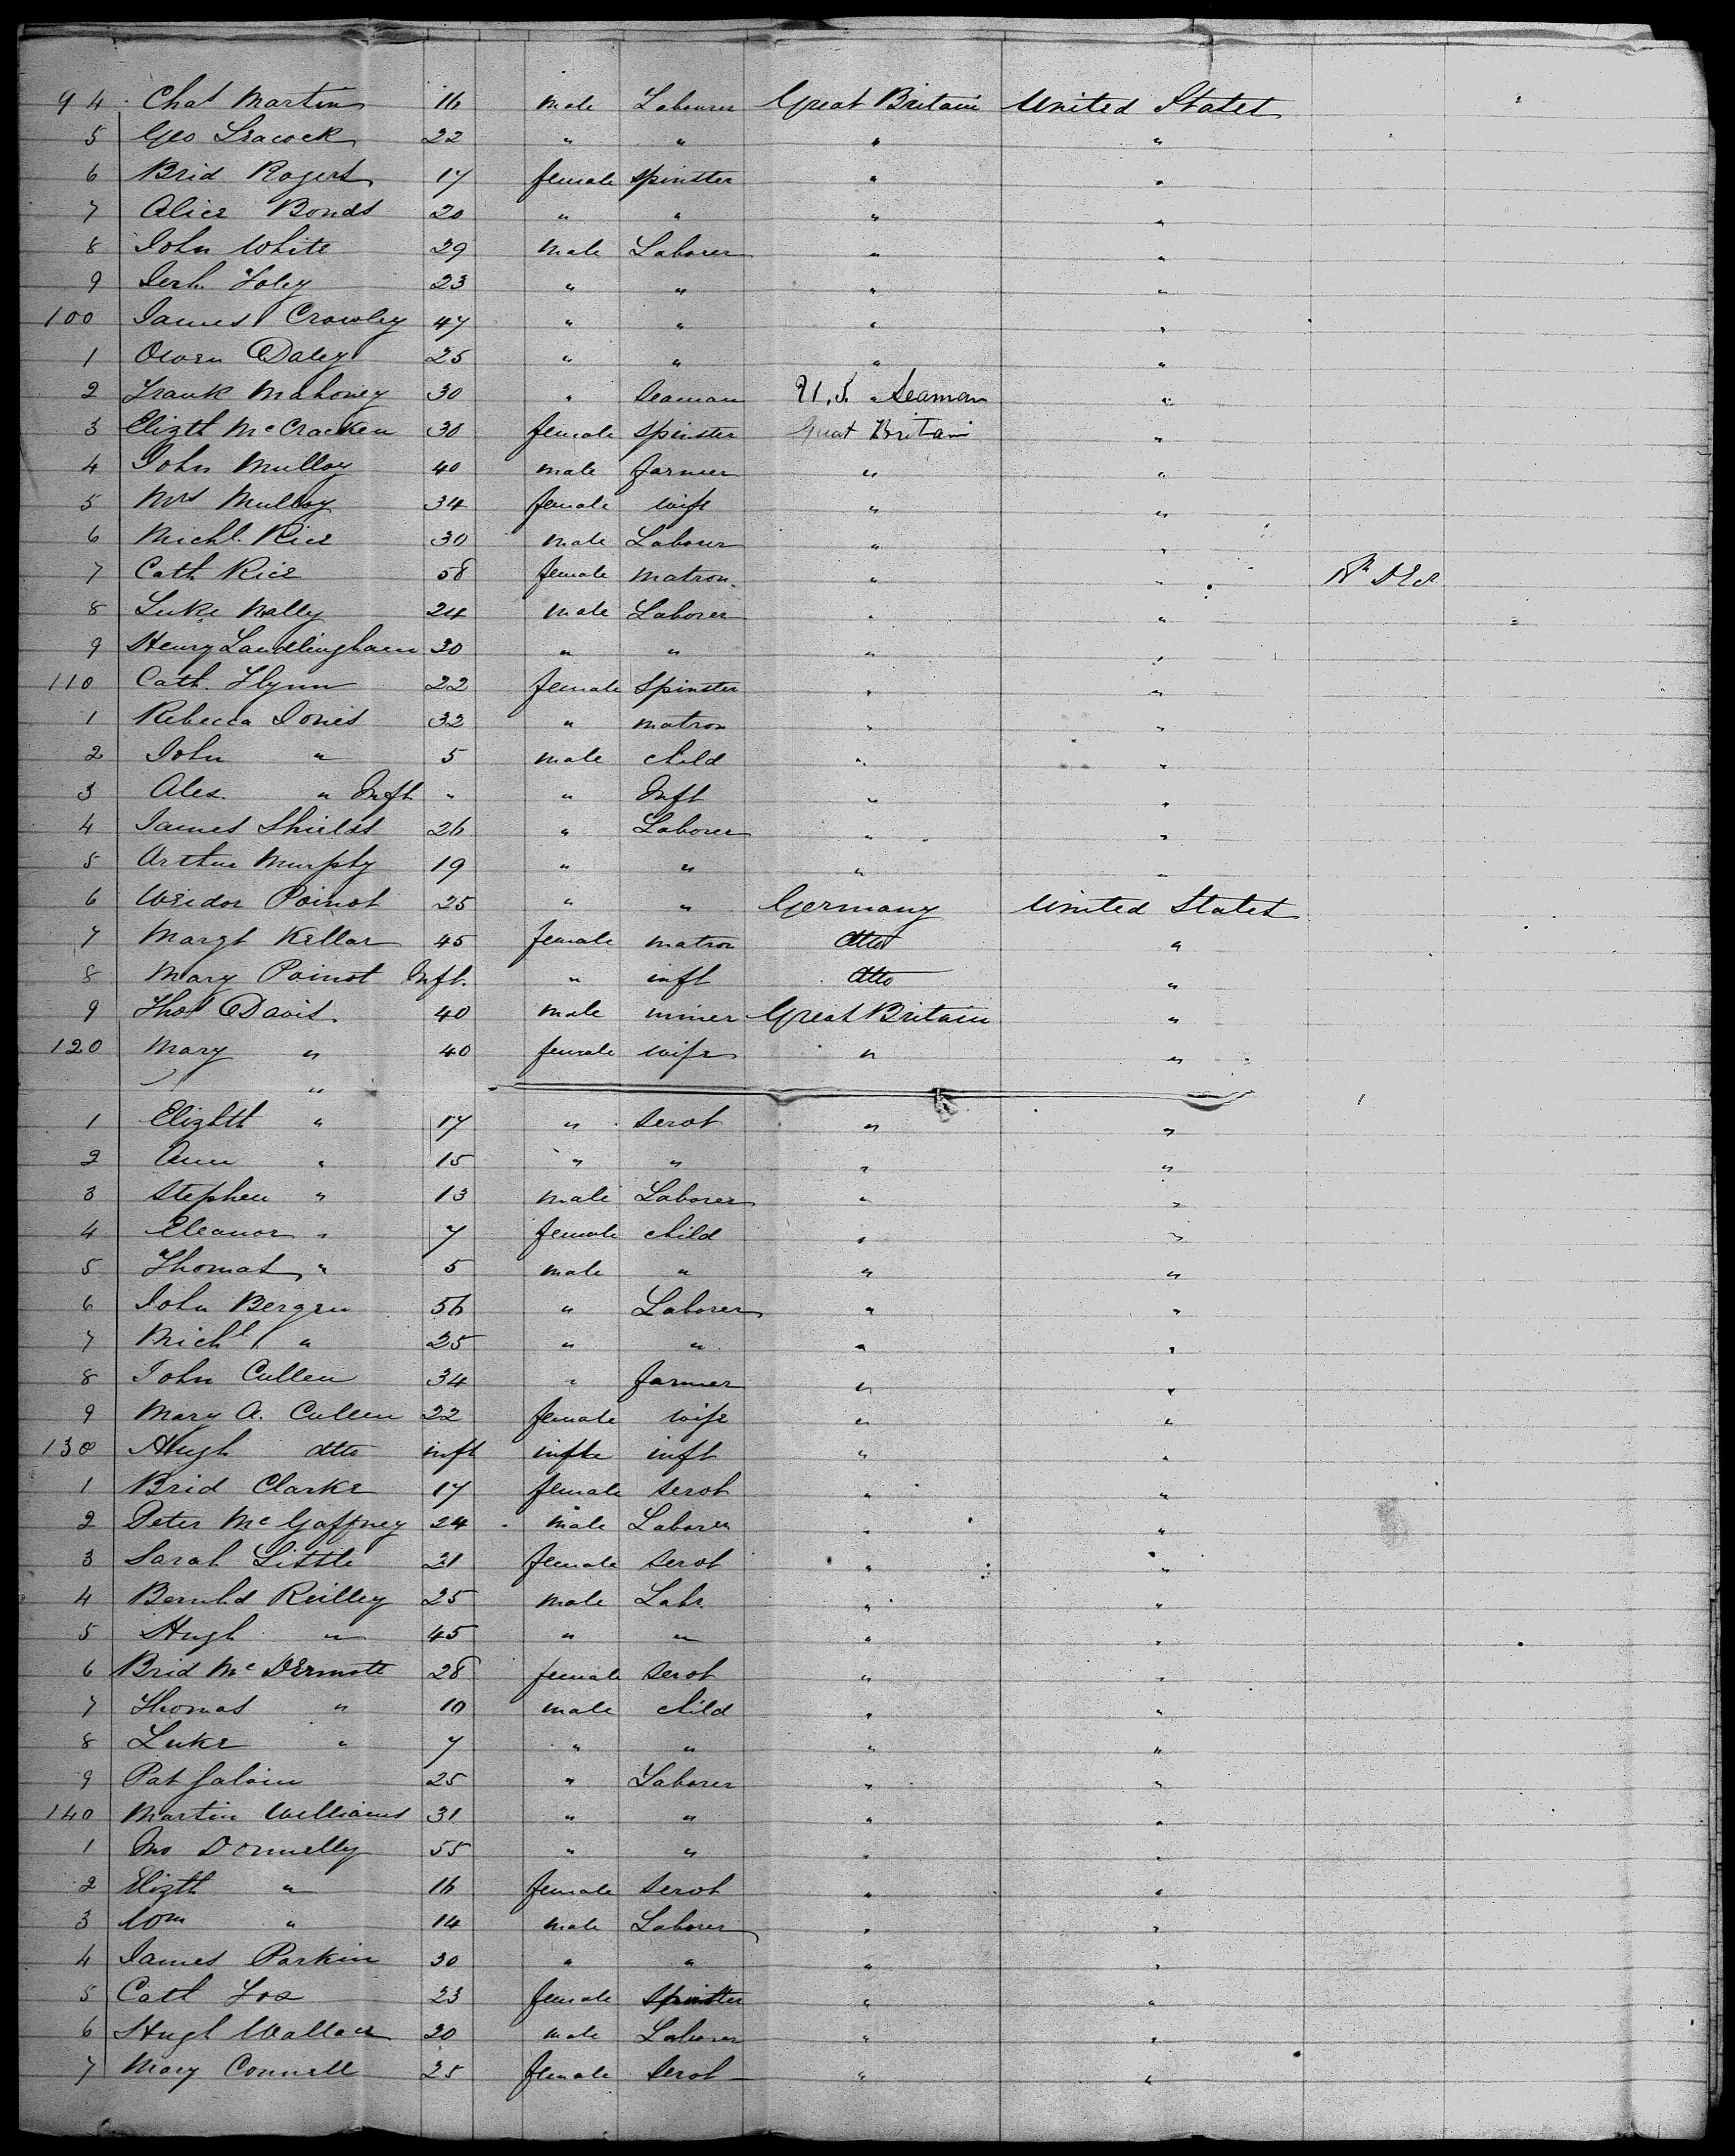 94 Chas Martin 16 male Labourer Great Britain United States
5 Geo Leacock 22 " " " "
6 Brid Rogers 17 female spinster " "
7 Alice Bonds 20 " " " "
8 John White 29 male Laborer " "
9 Jerh. Foley 23 " " " "
100 James Crowley 47 " " " "
1 Owen Daley 25 " " " "
2 Frank Mahoney 30 " Seaman U.S. Seaman "
3 Elizth McCracken 30 female spinster Great Britain "
4 John Mulloy 40 male farmer " "
5 Mrs Mulloy 34 female wife " "
6 Michl. Rice 30 male Laborer " "
7 Cath Rice 58 female matron. " "
8 Luke Nally 24 male Laborer " "
9 Henry Landlingham 30 " " " "
110 Cath. Flynn 22 female Spinster " "
1 Rebecca Jones 32 " matron " "
2 John " 5 male child " "
3 Alex. " Inft " " Inft " "
4 James Shields 26 " Laborer " "
5 Arthur Murphy 19 " " " "
6 Poinot 25 " " Germany United States
7 Margt Kellar 45 female matron ditto "
8 Mary Poinot Inft. " inft ditto "
9 Thos Davis. 40 male miner Great Britain "
120 Mary " 40 female wife " "
"
1 Elizbth " 17 " servt " "
2 Ann " 15 " " " "
3 Stephen " 13 male Laborer " "
4 Eleanor " 7 female child " "
5 Thomas " 5 male " " "
6 John Bergen 56 " Laborer " "
7 Michl " 25 " " " "
8 John Cullen 34 " farmer " "
9 Mary A. Cullen 22 female wife " "
130 Hugh ditto inft infte inft " "
1 Brid Clarke 17 female servt " "
2 Peter McGaffney 24 male Laborer " "
3 Sarah Little 21 female servt " "
4 Bernhd Reilley 25 male Labr. " "
5 Hugh " 45 " " " "
6 Brid McDermott 28 female servt " "
7 Thomas " 10 male child " "
8 Luke " 7 " " " "
9 Pat Galvin 25 " Laborer " "
140 Martin Williams 31 " " " "
1 Jno Donnelly 55 " " " "
2 Elizth " 16 female servt " "
3 Wm " 14 male Laborer " "
4 James Parkin 30 " " " "
5 Cath Fox 23 female spinster " "
6 Hugh Wallace 20 male Laborer " "
7 Mary Connell 25 female servt " "